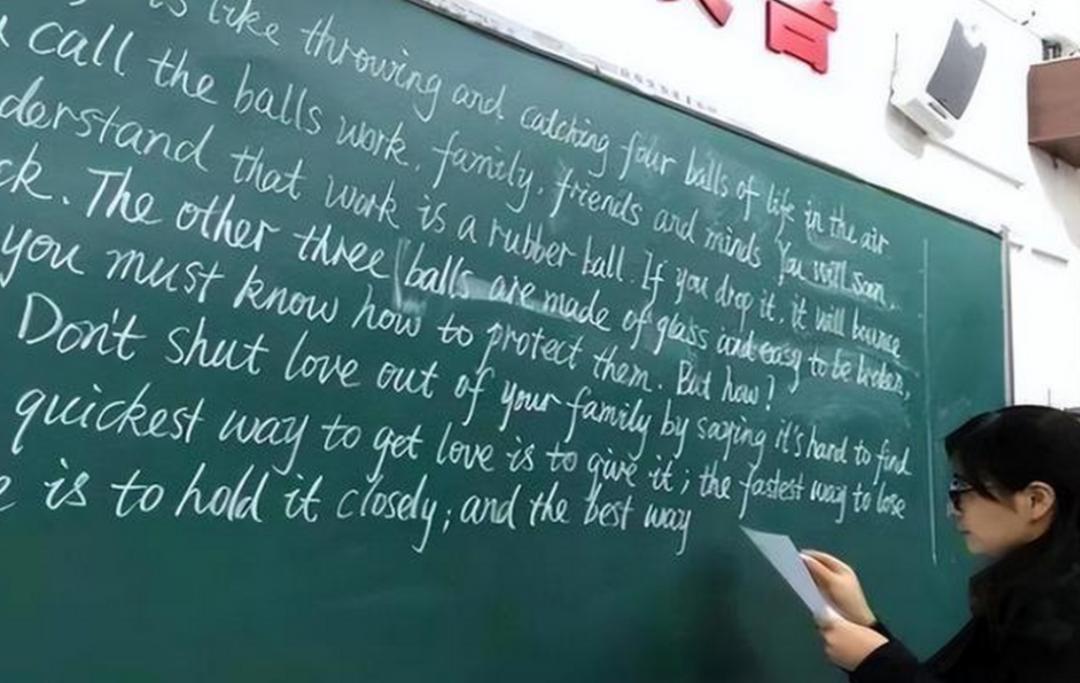 is like throwing and catching four balls of life in the air
call the balls work, family, friends and minds You will soon
derstand that work is a rubber ball. If you drop it, it will bounce
ck. The other three balls are made of glass and easy to be broken,
you must know how to protect them. But how?
Don't shut love out of your family by saying it's hard to find
quickest way to get love is to give it; the fastest way to lose
e is to hold it closely; and the best way
言